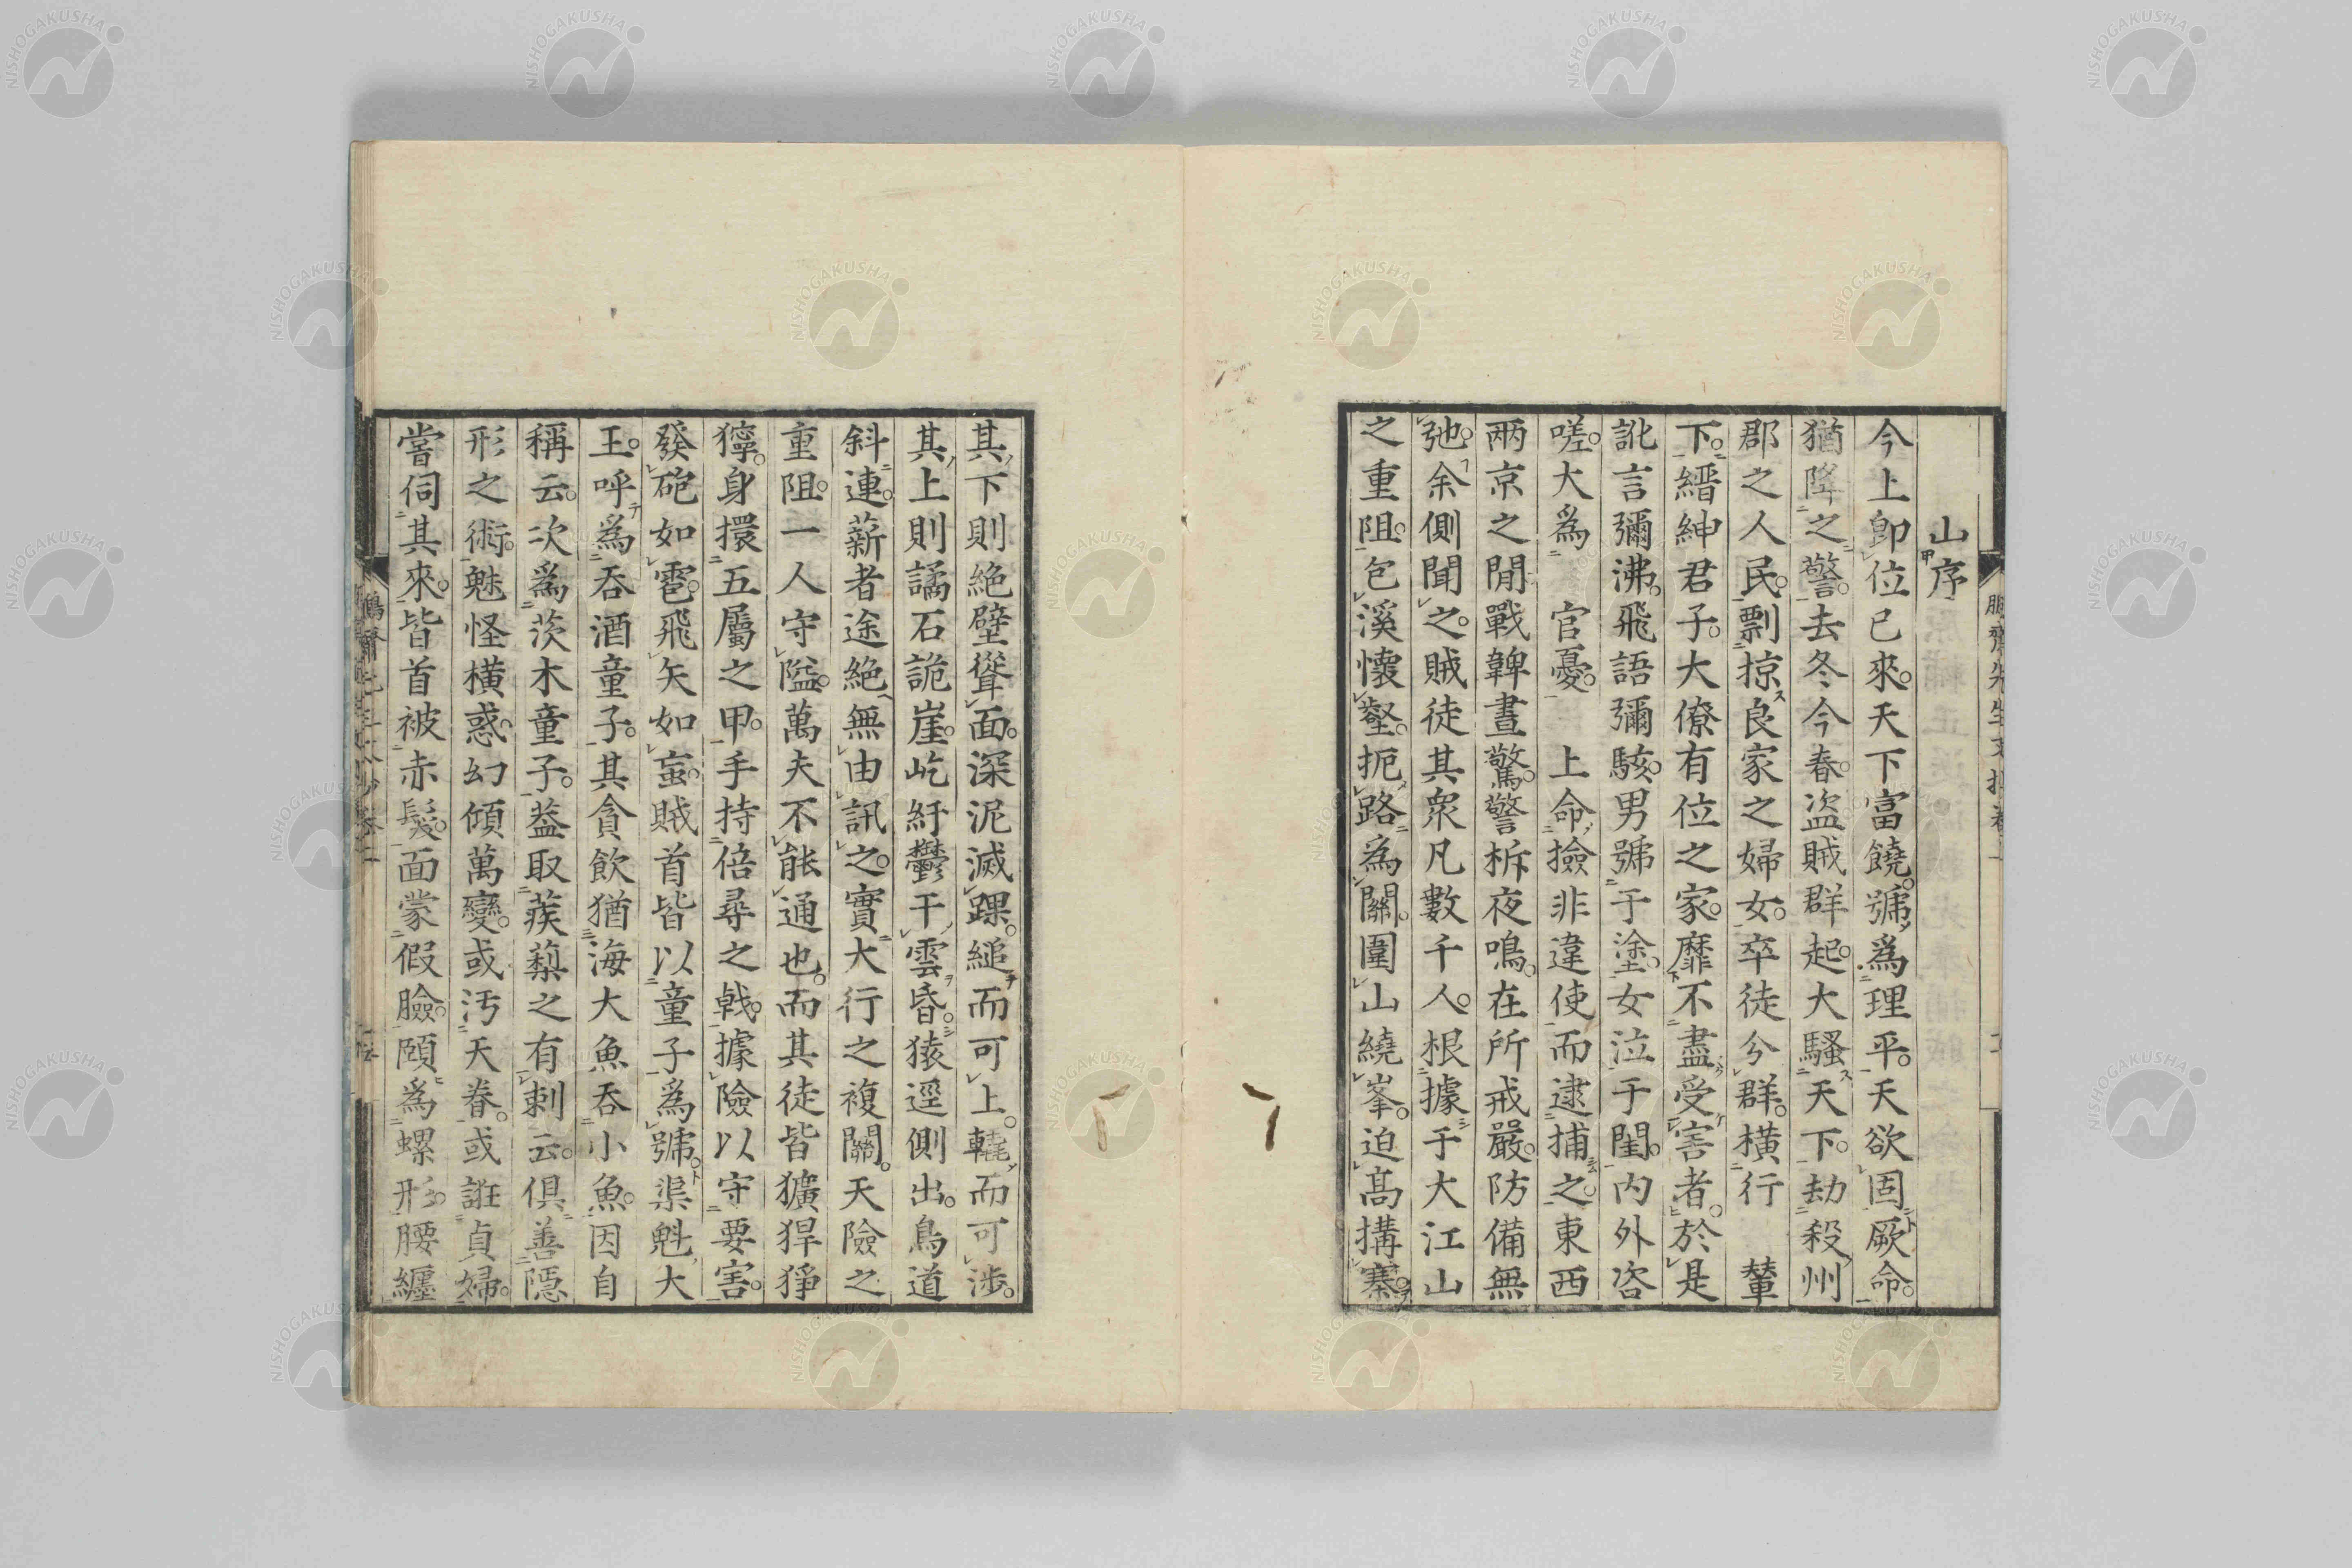 山序
今上卽位已來天下富饒號爲理平天欲固厥命
猶降之警去冬今春盜賊群起大騷天下劫殺州
郡之人民剽掠良家之婦女卒徒兮群橫行　輦
下縉紳君子大僚有位之家靡不盡受害者於是
訛言彌沸飛語彌駭男號于塗女泣于閨內外咨
嗟大爲　官憂　上命撿非違使而逮捕之東西
兩京之閒戰鞞晝驚警柝夜鳴在所戒嚴防備無
弛余側聞之賊徒其衆凡數千人根據于大江山
之重阻包溪懷壑扼路為關圍山繞峯迫高搆寨
其下則絕壁聳面深泥滅踝縋而可上轎而可涉
其上則譎石詭崖屹紆鬱干雲昏猿逕側出鳥道
斜連薪者途絕無由訊之實大行之複關天險之
重阻一人守隘萬夫不能通也而其徒皆獷猂猙
獰身擐五屬之甲手持倍尋之戟據險以守要害
發砲如雹飛矢如蝱賊首皆以童子為號渠魁大
王呼爲吞酒童子其貪飲猶海大魚吞小魚因自
稱云次爲茨木童子葢取蒺蔾之有刺云俱善隱
形之術魅怪橫惑幻傾萬變或汚天眷或誑貞婦
嘗伺其來皆首被赤髮面蒙假臉頤爲螺形腰纏
NISHOGAKUSHA